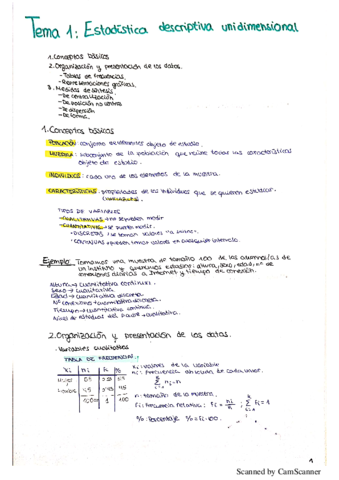 Tema 1: Estadística descriptiva unidimensional
1. Conceptos básicos
2. Organización y presentación de los datos.
- Tablas de frecuencias.
- Representaciones gráficas.
3. Medidas de síntesis
- De centralización
- De posición no central
- De dispersión
- De forma.
1. Conceptos básicos
POBLACIÓN: conjunto de elementos objeto de estudio.
MUESTRA: subconjunto de la población que reúne todas las características
objeto de estudio.
INDIVIDUO: cada uno de los elementos de la muestra.
CARACTERÍSTICAS: propiedades de los individuos que se quieren estudiar.
TIPOS DE VARIABLES
- CUALITATIVAS: no se pueden medir
- CUANTITATIVAS: se pueden medir.
• DISCRETAS: toman valores
• CONTINUAS: pueden tomar valores en cualquier intervalo.
Ejemplo: Tomamos una muestra de tamaño 100 de los alumnos/as de
un instituto y queremos estudiar: altura, sexo, edad, nº de
conexiones diarias a Internet y tiempo de conexión.
Altura → cuantitativa continua.
Sexo → cualitativa
Edad → cuantitativa discreta
Nº conexiones → cuantitativa discreta.
Tiempo → cuantitativa continua.
Nivel de estudios del padre → cualitativa
2. Organización y presentación de los datos.
- Variables cualitativas
TABLA DE FRECUENCIAS:
xi: valores de la variable
xi ni fi %
ni: frecuencia absoluta de cada valor.
n: tamaño de la muestra
fi: frecuencia relativa: fi = ni/n
%: Porcentaje %= fi·100.
1
Scanned by CamScanner